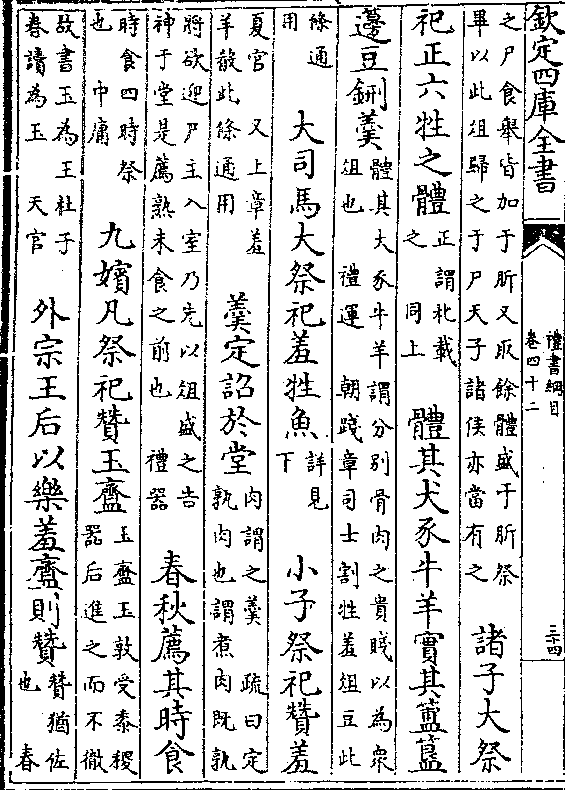 欽定四庫全書
禮書綱目
卷四十二
三十四
之尸食舉皆加于肵又取餘體盛于肵祭
畢以此俎歸之于尸天子諸侯亦當有之
諸子大祭
祀正六牲之體
正謂朼載
之 同上
體其犬豕牛羊實其簠簋
籩豆鉶羹
體其犬豕牛羊謂分别骨肉之貴賤以為衆
俎也 禮運 朝踐章司士割牲羞俎豆此
條通
用
大司馬大祭祀羞牲魚
詳見
下
小子祭祀贊羞
夏官 又上章羞
羊殽此條通用
羹定詔於堂
肉謂之羹 疏曰定
孰肉也謂煮肉既孰
將欲迎尸主入室乃先以俎盛之告
神于堂是薦熟未食之前也 禮器
春秋薦其時食
時食四時祭
也 中庸
九嬪凡祭祀贊玉齍
玉齍玉敦受黍稷
器后進之而不徹
故書玉為王杜子
春讀為玉 天官
外宗王后以樂羞齍則贊
贊猶佐
也 春